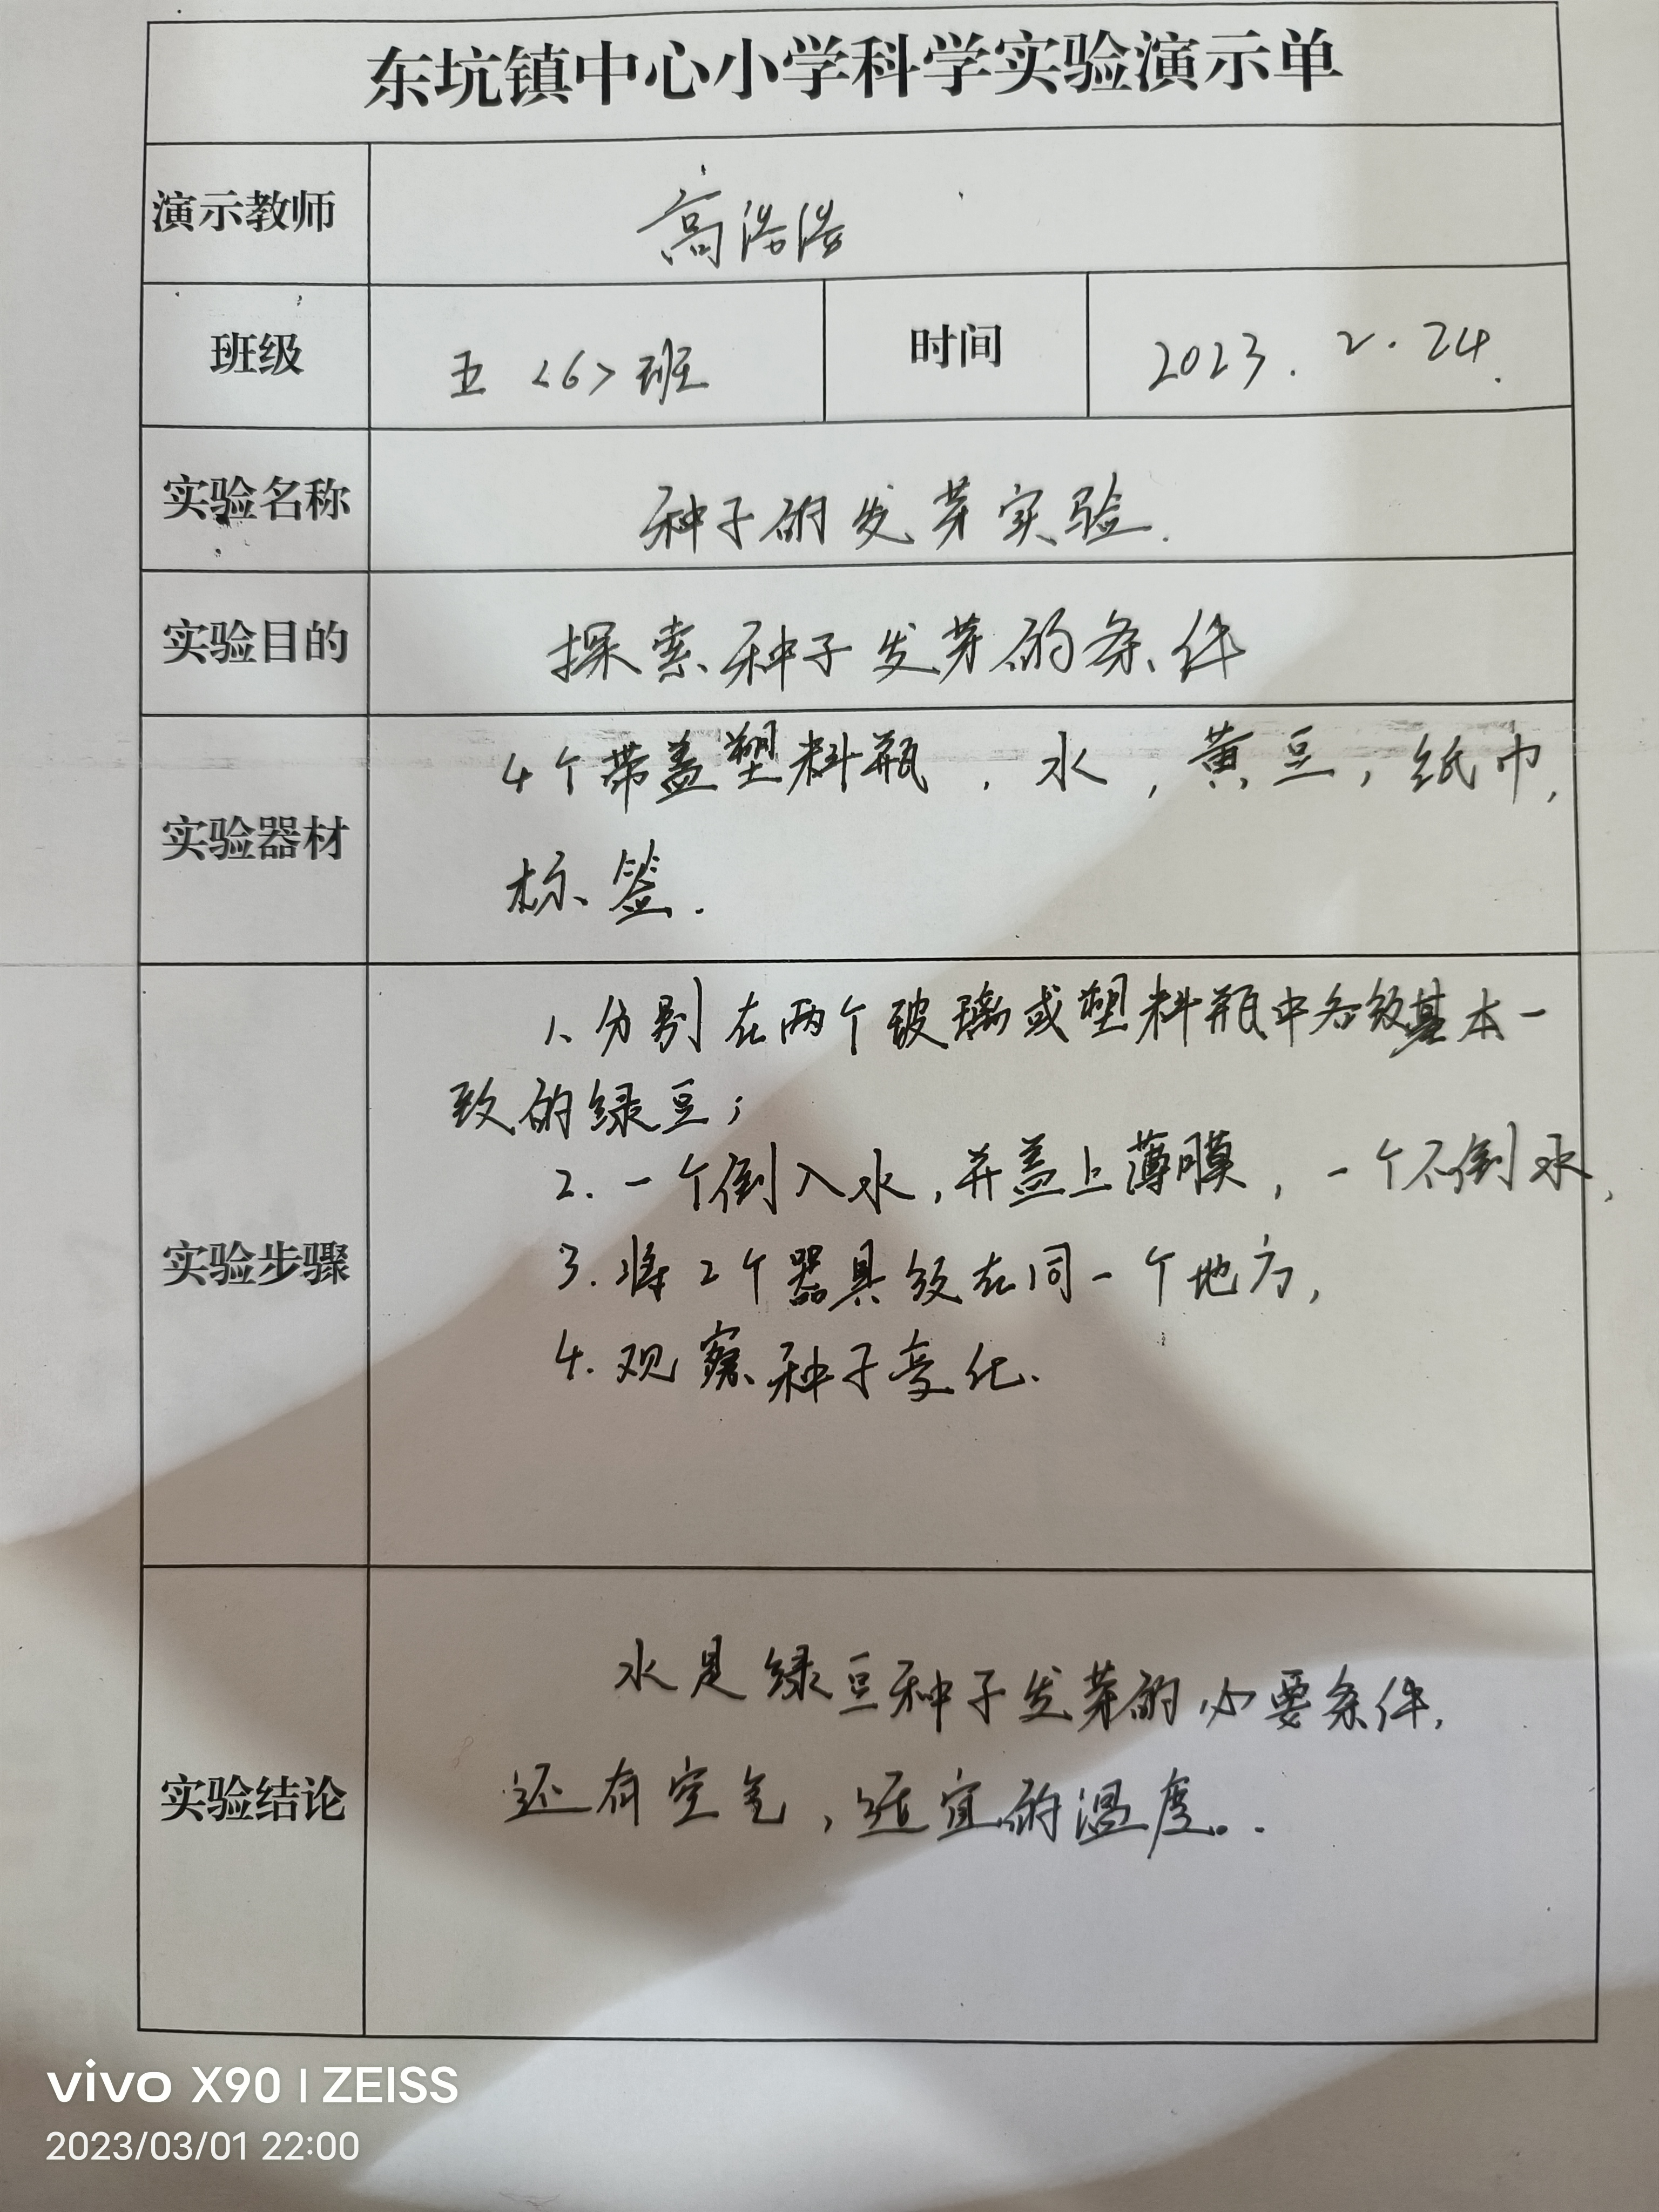 东坑镇中心小学科学实验演示单
演示教师 高浩浩
班级 五<6>班 时间 2023.2.24.
实验名称 种子的发芽实验.
实验目的 探索种子发芽的条件
实验器材
4个带盖塑料瓶,水,黄豆,纸巾,
标签.
实验步骤
1、分别在两个玻璃或塑料瓶中各放基本一
致的绿豆;
2.一个倒入水,并盖上薄膜,一个不倒水,
3.将2个器具放在同一个地方,
4.观察种子变化.
实验结论
水是绿豆种子发芽的必要条件,
还有空气,适宜的温度。.
vivo X90 | ZEISS
2023/03/01 22:00